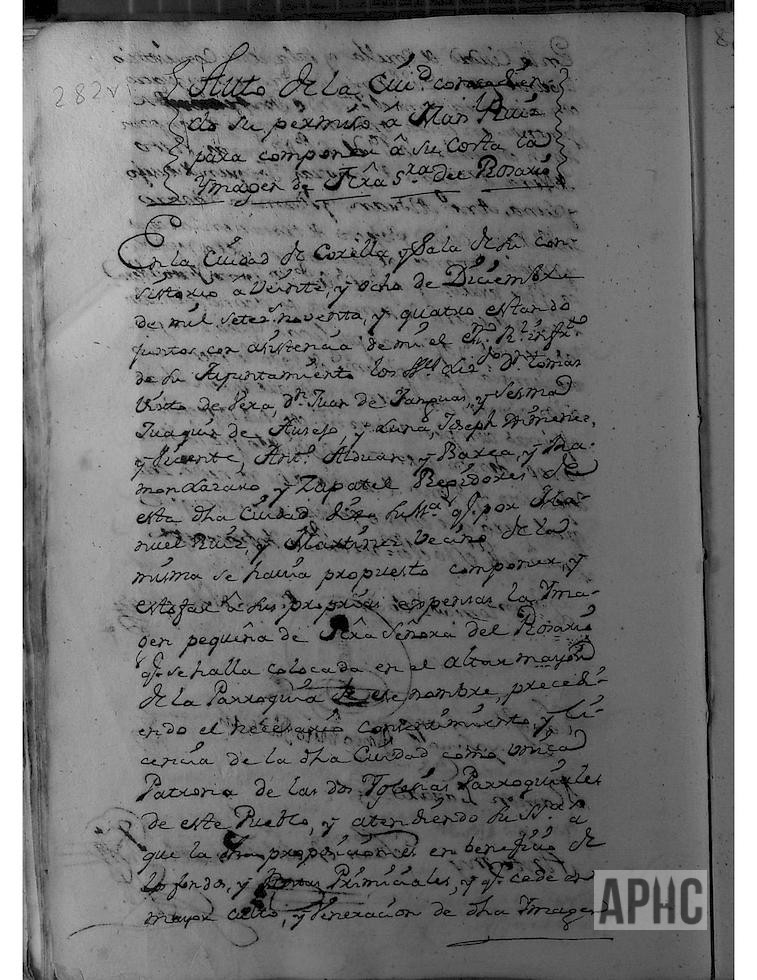 282v
Auto de la Ciud. concedien
do su permiso â Manl. Ruiz
para componer â su costa la
Ymagen de Ntra Sra. del Rosario
En la Ciudad de Corella, y Sala de su con
sistorio â veinte, y ocho de Diciembre
de mil setezs. noventa, y quatro estando
juntos con asistencia de mi el Rl. infto.
de su Ayuntamiento los Sres. Dn. Tomas
Virto de Vera, Dn. Juan de Sanguas, y Sesma
Juaquin de Auseso, y Luna, Joseph Ximenez,
y Vicente, Anto. Alduan, y Barea, y Ra-
mon Lazaro y Zapatel Regidores de
esta dha Ciudad dixo su Sa. q. por Ma-
nuel Ruiz, y Martinez vecino de la
misma se havia propuesto componer, y
estofar â sus proprias expensas la Yma-
gen pequeña de Ntra Señora del Rosario
q. se halla colocada en el altar mayor
de la Parroquia de ese nombre, precedi-
endo el necesario consentimiento, y li-
cencia de la dha Ciudad como unica
Patrona de las dos Yglesias Parroquiales
de este Pueblo, y atendiendo su Sa. a
que la dha proposicion es en beneficio de
los fondos, y Rentas Primiciales, y q. cede en
mayor culto, y Veneracion de dha Ymagen
APHC